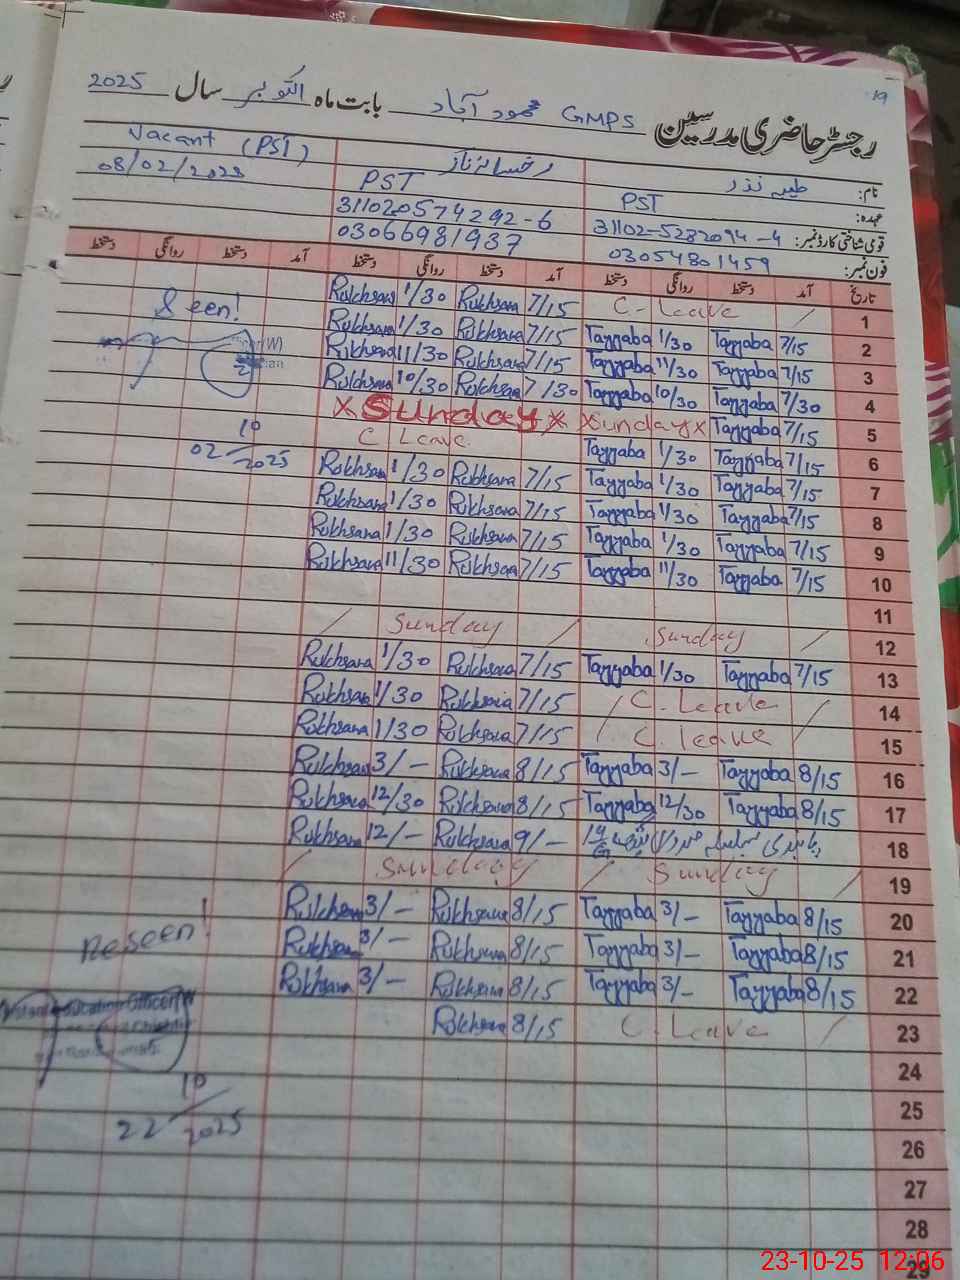 19
رجسٹر حاضری مدرسین GMPS محمود آباد بابت ماہ اکتوبر سال 2025
نام: طیبہ نذر رخسانہ ناز Vacant (PST)
عہدہ: PST PST 08/02/2023
قومی شناختی کارڈ نمبر: 31102-5282094-4 311020574292-6
فون نمبر: 03054801459 03066981937
تاریخ آمد دستخط روانگی دستخط آمد دستخط روانگی دستخط آمد دستخط روانگی دستخط
Rukhsana 1/30 Rukhsana 7/15 C-Leave / 1
Rukhsana 1/30 Rukhsana 7/15 Tayyaba 1/30 Tayyaba 7/15 2
Rukhsana 11/30 Rukhsana 7/15 Tayyaba 11/30 Tayyaba 7/15 3
Rukhsana 10/30 Rukhsana 7/30 Tayyaba 10/30 Tayyaba 7/30 4
x Sunday x x Sunday x Tayyaba 7/15 5
C Leave Tayyaba 1/30 Tayyaba 7/15 6
Rukhsana 1/30 Rukhsana 7/15 Tayyaba 1/30 Tayyaba 7/15 7
Rukhsana 1/30 Rukhsana 7/15 Tayyaba 1/30 Tayyaba 7/15 8
Rukhsana 1/30 Rukhsana 7/15 Tayyaba 1/30 Tayyaba 7/15 9
Rukhsana 11/30 Rukhsana 7/15 Tayyaba 11/30 Tayyaba 7/15 10
11
/ Sunday / Sunday / 12
Rukhsana 1/30 Rukhsana 7/15 Tayyaba 1/30 Tayyaba 7/15 13
Rukhsana 1/30 Rukhsana 7/15 / C. Leave / 14
Rukhsana 1/30 Rukhsana 7/15 / C. leave / 15
Rukhsana 3/- Rukhsana 8/15 Tayyaba 3/- Tayyaba 8/15 16
Rukhsana 12/30 Rukhsana 8/15 Tayyaba 12/30 Tayyaba 8/15 17
Rukhsana 12/- Rukhsana 9/- 18
/ Sunday / Sunday / 19
Rukhsana 3/- Rukhsana 8/15 Tayyaba 3/- Tayyaba 8/15 20
Rukhsana 3/- Rukhsana 8/15 Tayyaba 3/- Tayyaba 8/15 21
Rukhsana 3/- Rukhsana 8/15 Tayyaba 3/- Tayyaba 8/15 22
Rukhsana 8/15 C-Leave / 23
24
25
26
27
28
29
Seen!
(W)
10
02/2025
Reseen!
Education Officer
10
22/2025
23-10-25 12:06